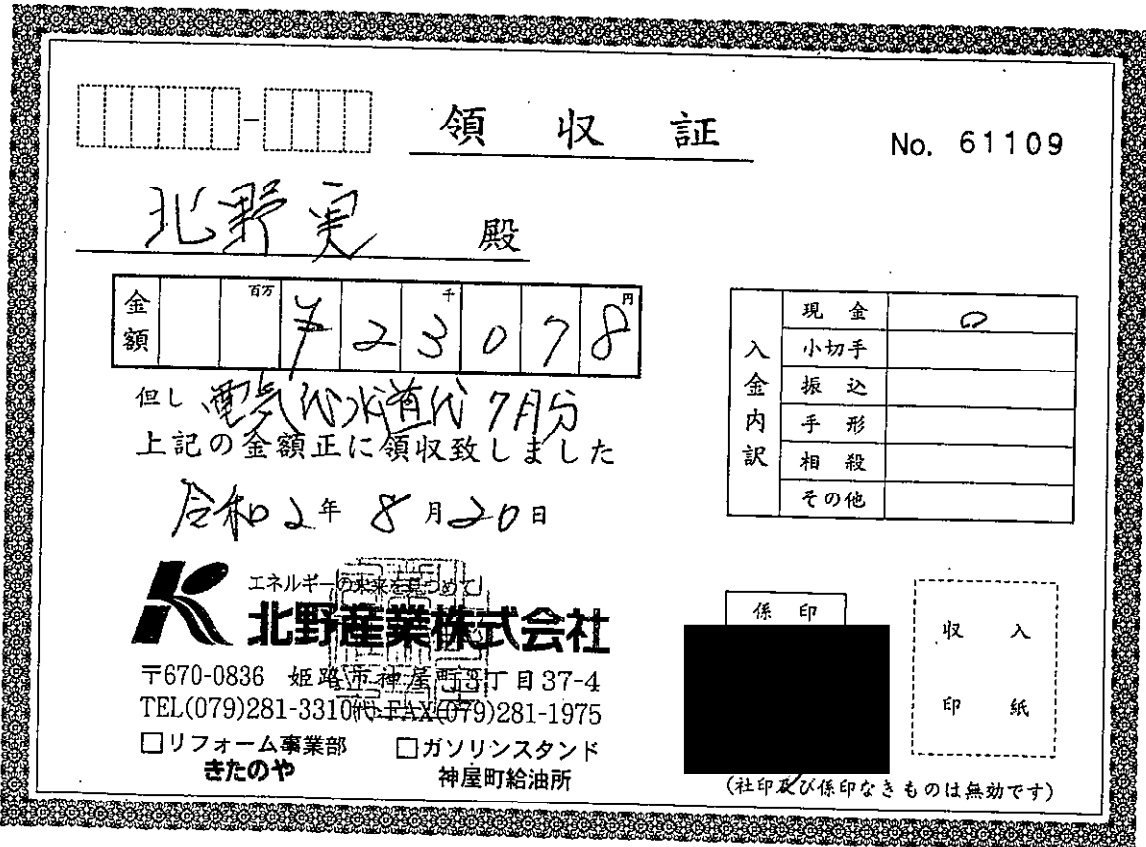 領収証
No. 61109
北野実 殿
金額 百万 千 円
¥23078
但し 電気代水道代 7月分
上記の金額正に領収致しました
令和2年8月20日
入金内訳
現金 0
小切手
振込
手形
相殺
その他
エネルギーの未来を見つめて
北野産業株式会社
〒670-0836 姫路市神屋町3丁目37-4
TEL(079)281-3310代 FAX(079)281-1975
□リフォーム事業部 □ガソリンスタンド
きたのや 神屋町給油所
係印
収入
印紙
(社印及び係印なきものは無効です)